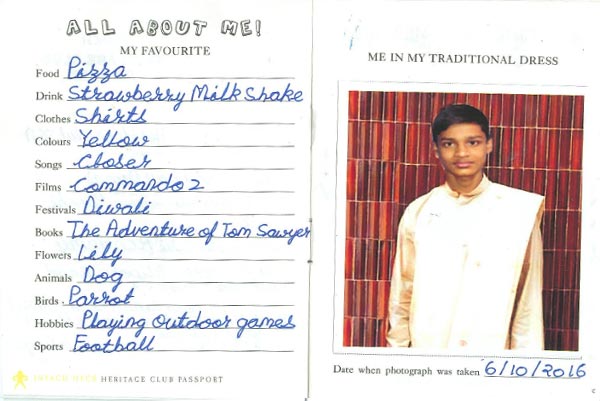 ALL ABOUT ME!
MY FAVOURITE
Food Pizza
Drink Strawberry Milk Shake
Clothes Shirts
Colours Yellow
Songs Closer
Films Commando 2
Festivals Diwali
Books The Adventure of Tom Sawyer
Flowers Lily
Animals Dog
Birds Parrot
Hobbies Playing outdoor games
Sports Football
HERITAGE CLUB PASSPORT
ME IN MY TRADITIONAL DRESS
Date when photograph was taken 6/10/2016